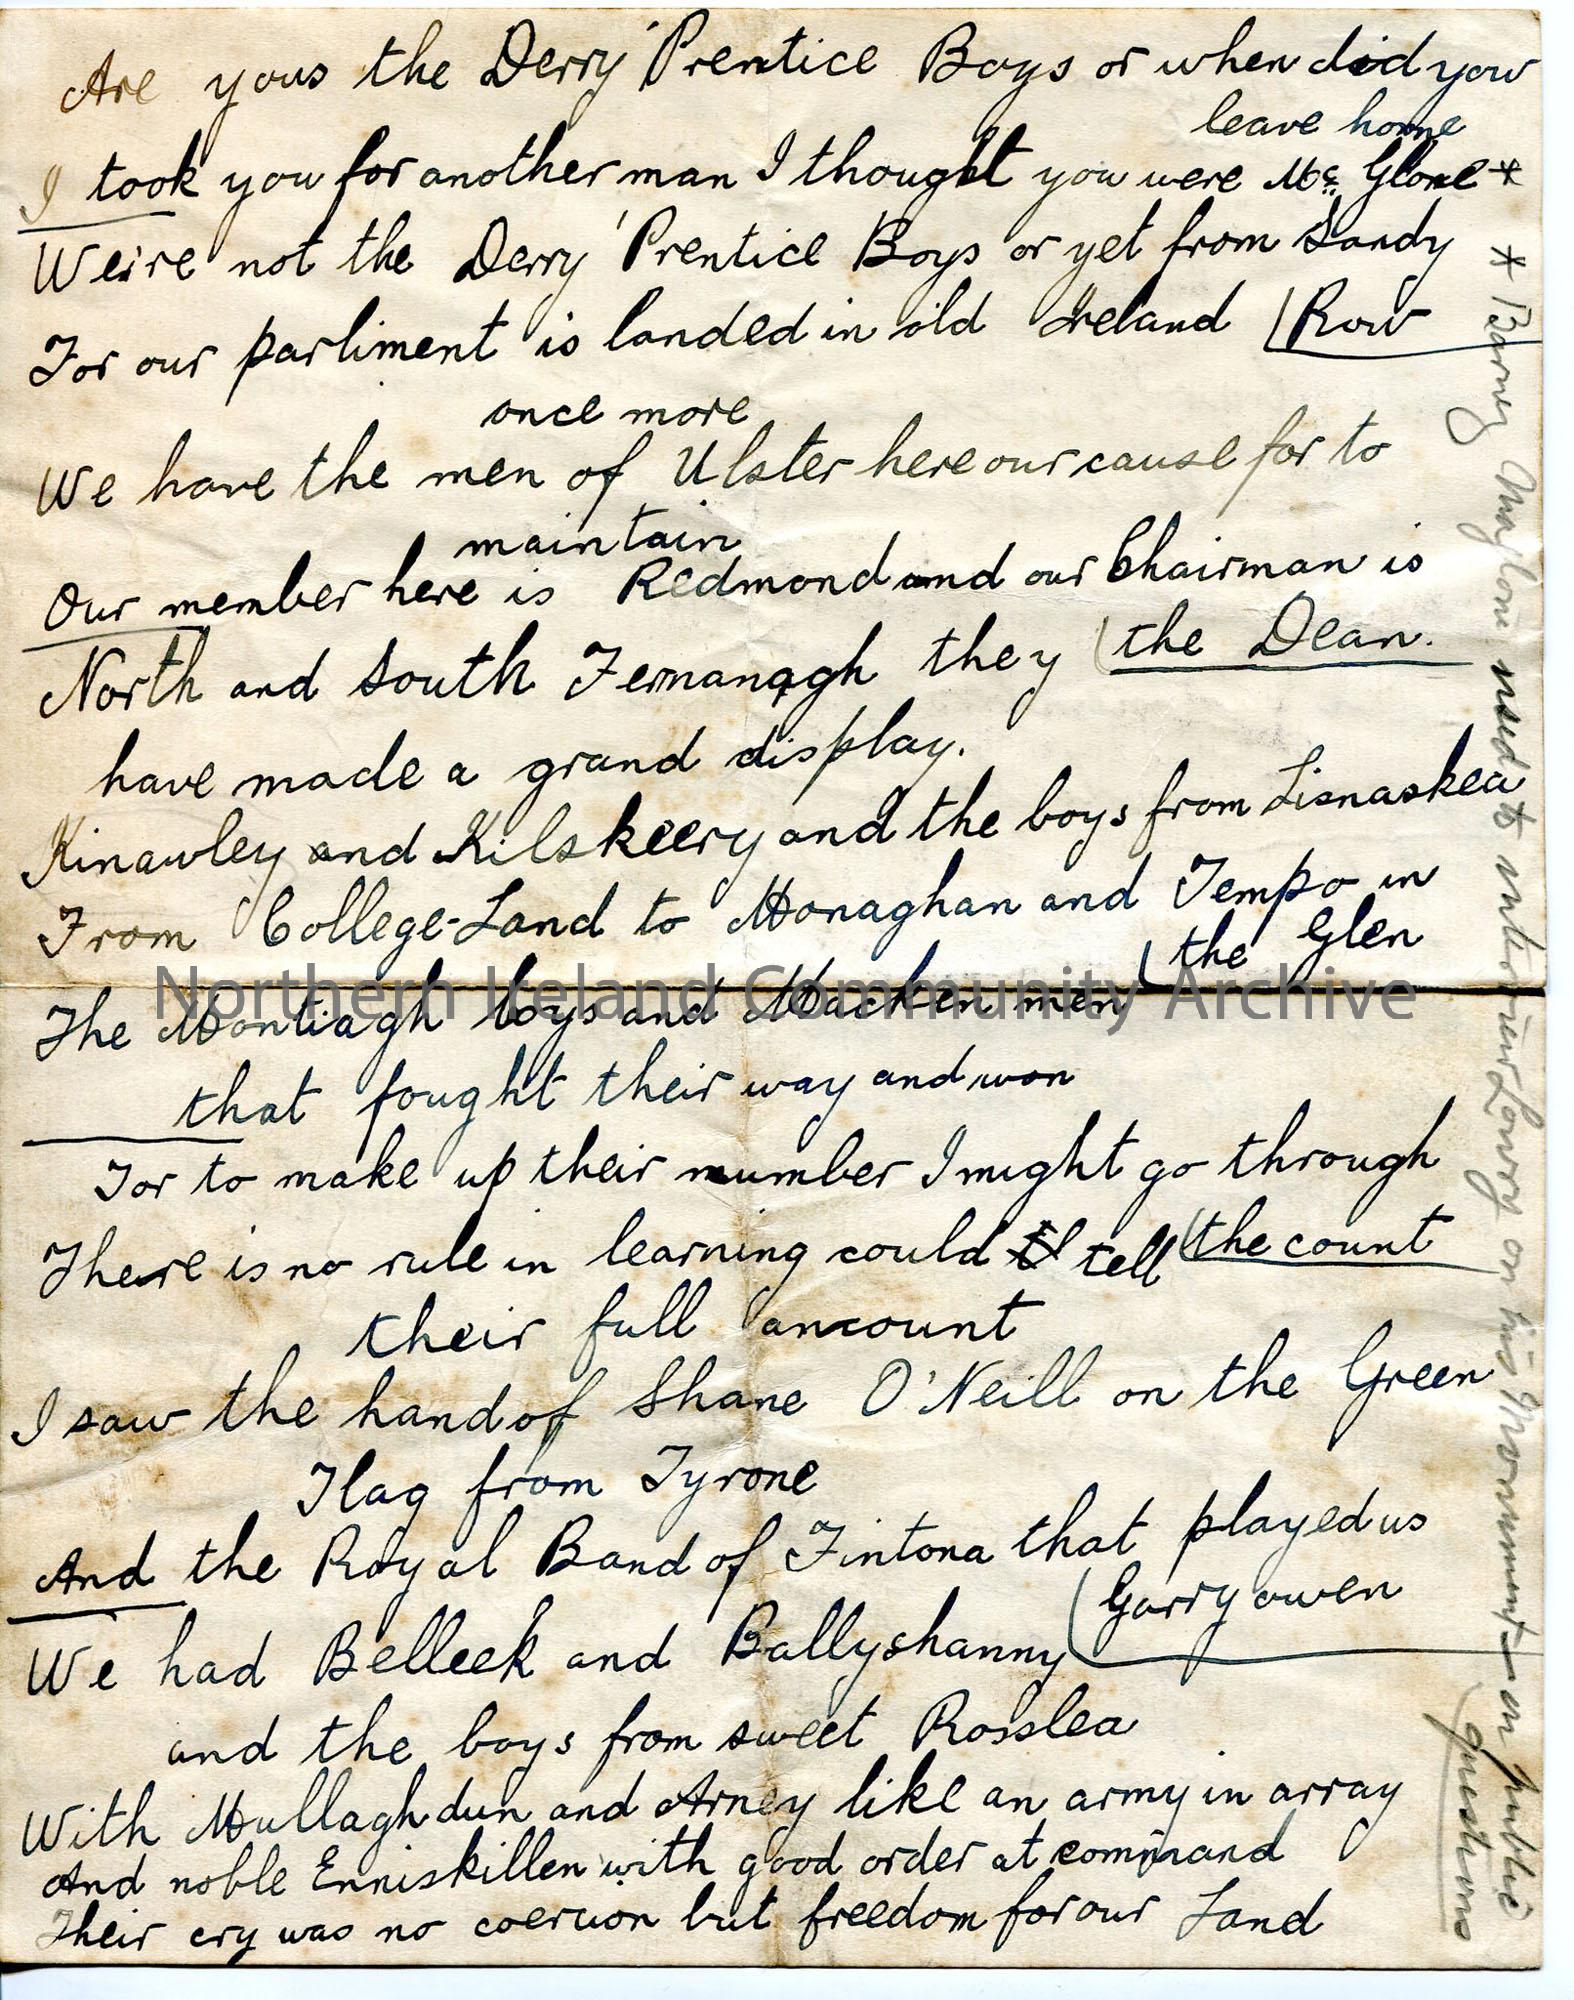 Are yous the Derry 'Prentice Boys or when did you
leave home
I took you for another man I thought you were Mc. Glone *
We're not the Derry 'Prentice Boys or yet from Sandy
Row
For our parliment is landed in old Ireland
once more
We have the men of Ulster here our cause for to
maintain
Our member here is Redmond and our Chairman is
the Dean.
North and South Fermanagh they
have made a grand display.
Kinawley and Kilskeery and the boys from Lisnaskea
From College-Land to Monaghan and Tempo in
the Glen
The Montiagh boys and Macken men
that fought their way and won
For to make up their number I might go through
the count
There is no rule in learning could tell
their full amount
I saw the hand of Shane O'Neill on the Green
Flag from Tyrone
And the Royal Band of Fintona that played us
Garry owen
We had Belleek and Ballyshanny
and the boys from sweet Rosslea
With Mullaghdun and Arney like an army in array
And noble Enniskillen with good order at command
Their cry was no coercion but freedom for our Land
* Barney used to Lowry on his on public
questions
Northern Ireland Community Archive